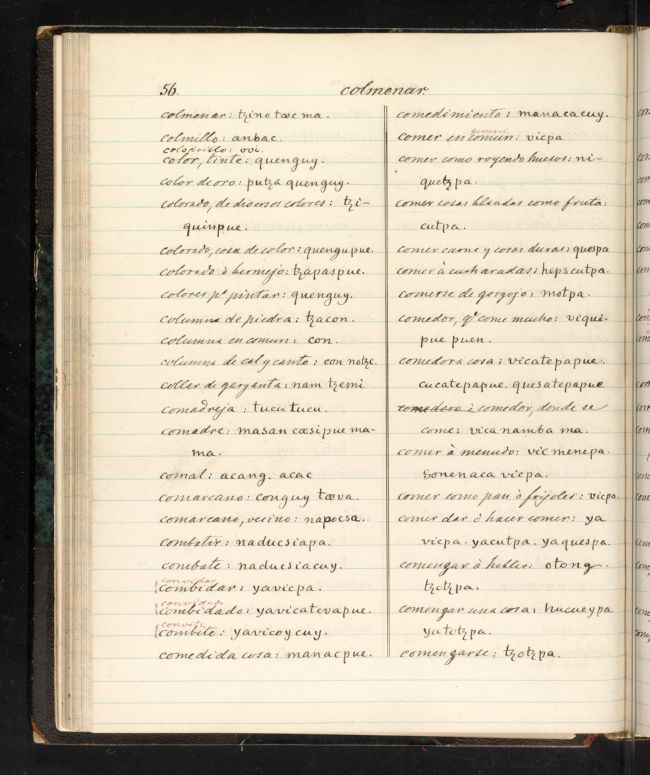 56.
colmenar.
colmenar: tzino tæc ma.
colmillo: anbac.
colodrillo: ovi.
color, tinte: quenguy.
color de oro: putza quenguy.
colorado, de diversos colores: tzi-
quinpue.
colorado, cosa de color: quengupue.
colorado ò bermejo: tzapaspue.
colores pa pintar: quenguy.
columna de piedra: tzacon.
columna en comun: con.
columna de cal y canto: con notzc
collar de garganta: nam tzemi
comadreja: tucu tucu.
comadre: masan cæsi pue ma-
ma.
comal: acang. acac
comarcano: conguy tæva.
comarcano, vecino: napocsa.
combatir: naducsiapa.
combate: naducsiacuy.
convidar
combidar: yavicpa.
convidado
combidado: yavicatevapue.
convite
combite: yavicoycuy.
comedida cosa: manacpue.
comedimiento: manacacuy.
general
comer en comun: vicpa
comer como royendo husos: ni-
quetzpa.
comer cosas blandas como fruta:
cutpa.
comer carne y cosas duras: quespa
comer à cucharadas: hepscutpa.
comerse de gorgojo: motpa.
comedor, qe come mucho: viqui-
pue puen.
comedora cosa: vicatepapue.
cucatepapue. quesatepapue
comedero ò comedor, donde se
come: vica namba ma.
comer à menudo: vic menepa.
sonenaca vicpa.
comer como pan ò frijoles: vicpa.
comer dar ò hacer comer: ya
vicpa. yacutpa. yaquespa.
comengar à hablar: otong
tzotzpa.
comengar una cosa: hucueypa.
yatotzpa.
comengarse: tzotzpa.